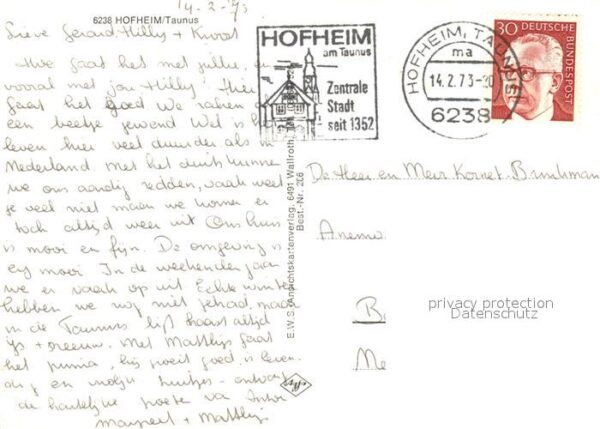 14-2-'73
6238 HOFHEIM/Taunus
Lieve Gerard Hilly + Knoot
Hoe gaat het met jullie, en
vooral met jou Hilly. Hier
gaat het goed We raken
een beetje gewend Wel is het
leven hier veel duurder als in
Nederland Met het duits kunnen
we ons aardig redden, vaak weet
je veel niet maar we komen er
toch altijd weer uit Ons huis
is mooi en fijn. De omgeving is
erg mooi In de weekenden gaan
we er vaak op uit Echte winter
hebben we nog niet gehad, maar
in de Taunus ligt haast altijd
ijs + sneeuw. Met Matthijs gaat
het prima, hij groeit goed
de hartelijke groeten van Anton
Margreet + Matthijs
HOFHEIM
am Taunus
Zentrale
Stadt
seit 1352
HOFHEIM, TAUNUS
ma
14.2.73-20
6238
30 DEUTSCHE
BUNDESPOST
E.W.S. Ansichtskartenverlag, 6491 Wallroth
Best.-Nr. 206
Agfa
De Heer en Mevr Kornet-Bruulsman
privacy protection
Datenschutz